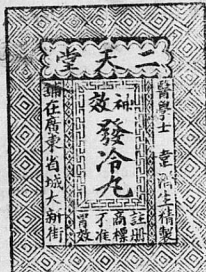 二天堂
醫學士 韋濟生精製
神效
發冷丸
註册商標
不准冒效
舖在廣東省城大新街